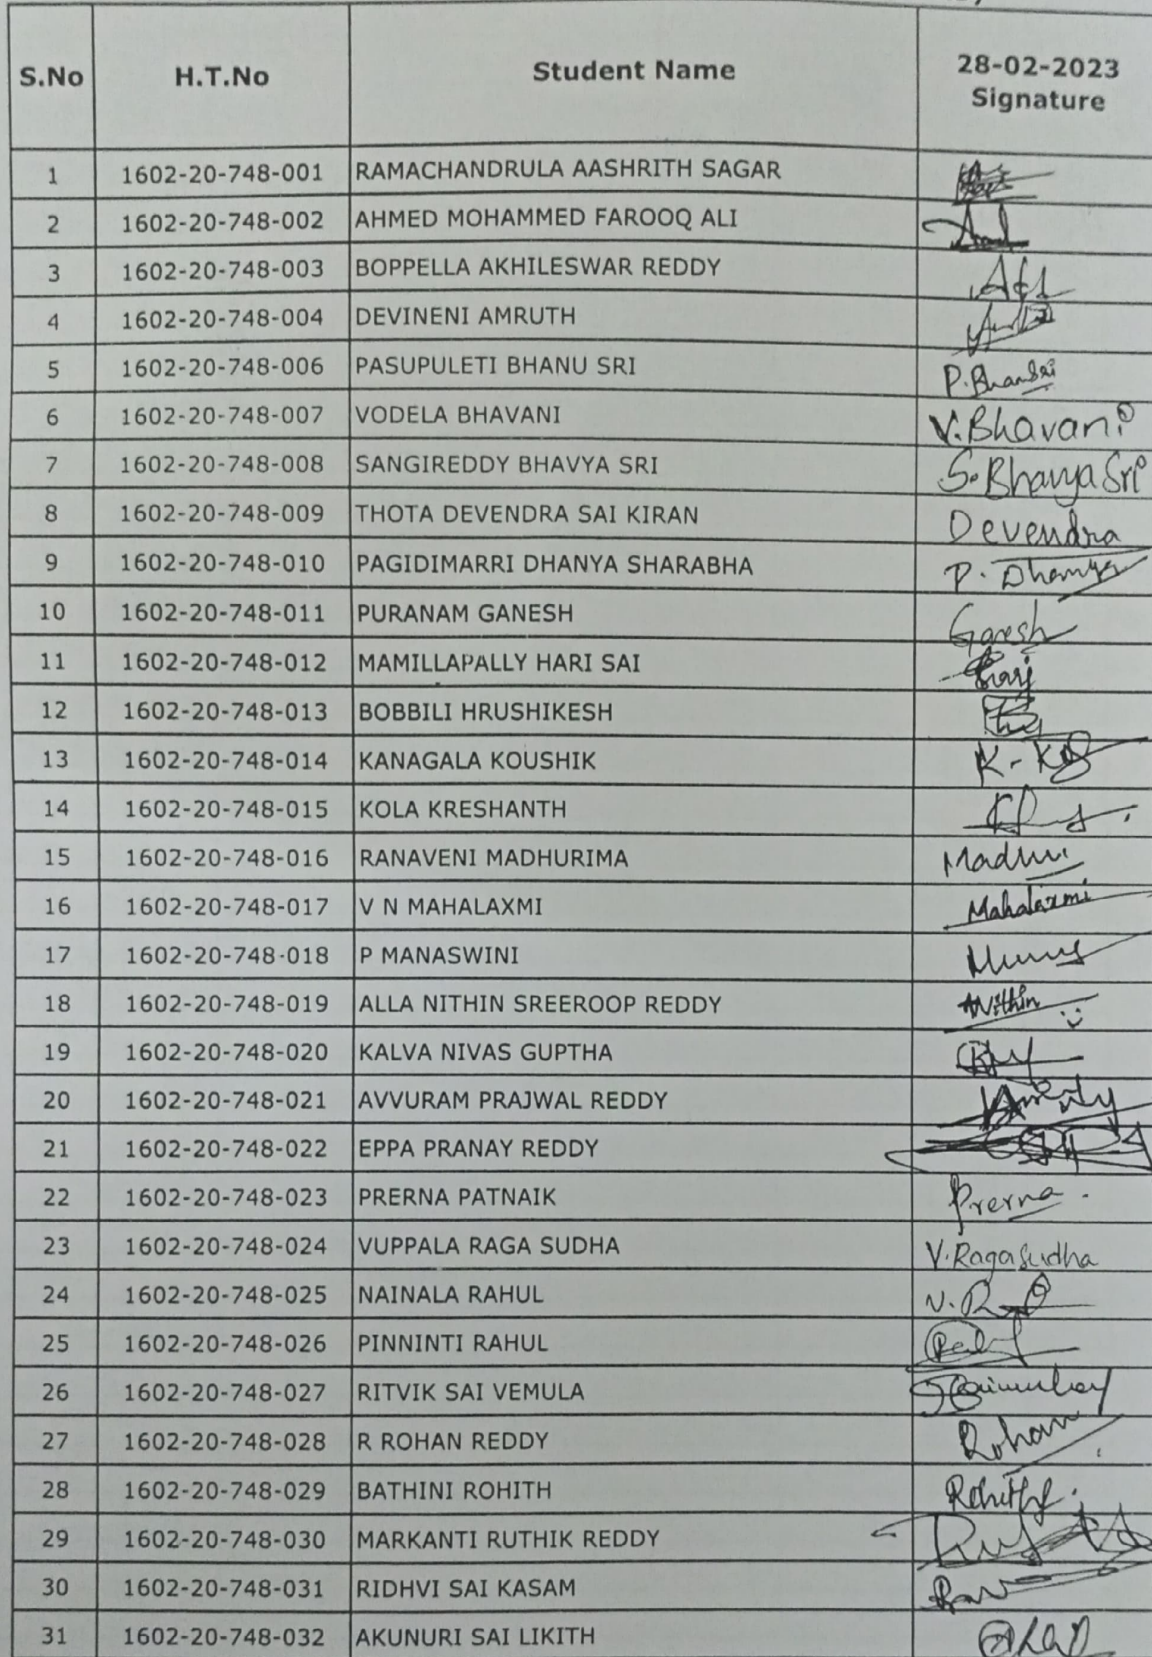 S.No H.T.No Student Name 28-02-2023
Signature
1 1602-20-748-001 RAMACHANDRULA AASHRITH SAGAR
2 1602-20-748-002 AHMED MOHAMMED FAROOQ ALI
3 1602-20-748-003 BOPPELLA AKHILESWAR REDDY
4 1602-20-748-004 DEVINENI AMRUTH
5 1602-20-748-006 PASUPULETI BHANU SRI P.BhanuSri
6 1602-20-748-007 VODELA BHAVANI V.Bhavani
7 1602-20-748-008 SANGIREDDY BHAVYA SRI S.Bhavya Sri
8 1602-20-748-009 THOTA DEVENDRA SAI KIRAN Devendra
9 1602-20-748-010 PAGIDIMARRI DHANYA SHARABHA P. Dhanya
10 1602-20-748-011 PURANAM GANESH Ganesh
11 1602-20-748-012 MAMILLAPALLY HARI SAI
12 1602-20-748-013 BOBBILI HRUSHIKESH
13 1602-20-748-014 KANAGALA KOUSHIK
14 1602-20-748-015 KOLA KRESHANTH
15 1602-20-748-016 RANAVENI MADHURIMA Madhu
16 1602-20-748-017 V N MAHALAXMI Mahalaxmi
17 1602-20-748-018 P MANASWINI
18 1602-20-748-019 ALLA NITHIN SREEROOP REDDY Nithin
19 1602-20-748-020 KALVA NIVAS GUPTHA
20 1602-20-748-021 AVVURAM PRAJWAL REDDY
21 1602-20-748-022 EPPA PRANAY REDDY
22 1602-20-748-023 PRERNA PATNAIK Prerna.
23 1602-20-748-024 VUPPALA RAGA SUDHA V.RagaSudha
24 1602-20-748-025 NAINALA RAHUL
25 1602-20-748-026 PINNINTI RAHUL
26 1602-20-748-027 RITVIK SAI VEMULA
27 1602-20-748-028 R ROHAN REDDY Rohan
28 1602-20-748-029 BATHINI ROHITH Rohith
29 1602-20-748-030 MARKANTI RUTHIK REDDY
30 1602-20-748-031 RIDHVI SAI KASAM
31 1602-20-748-032 AKUNURI SAI LIKITH